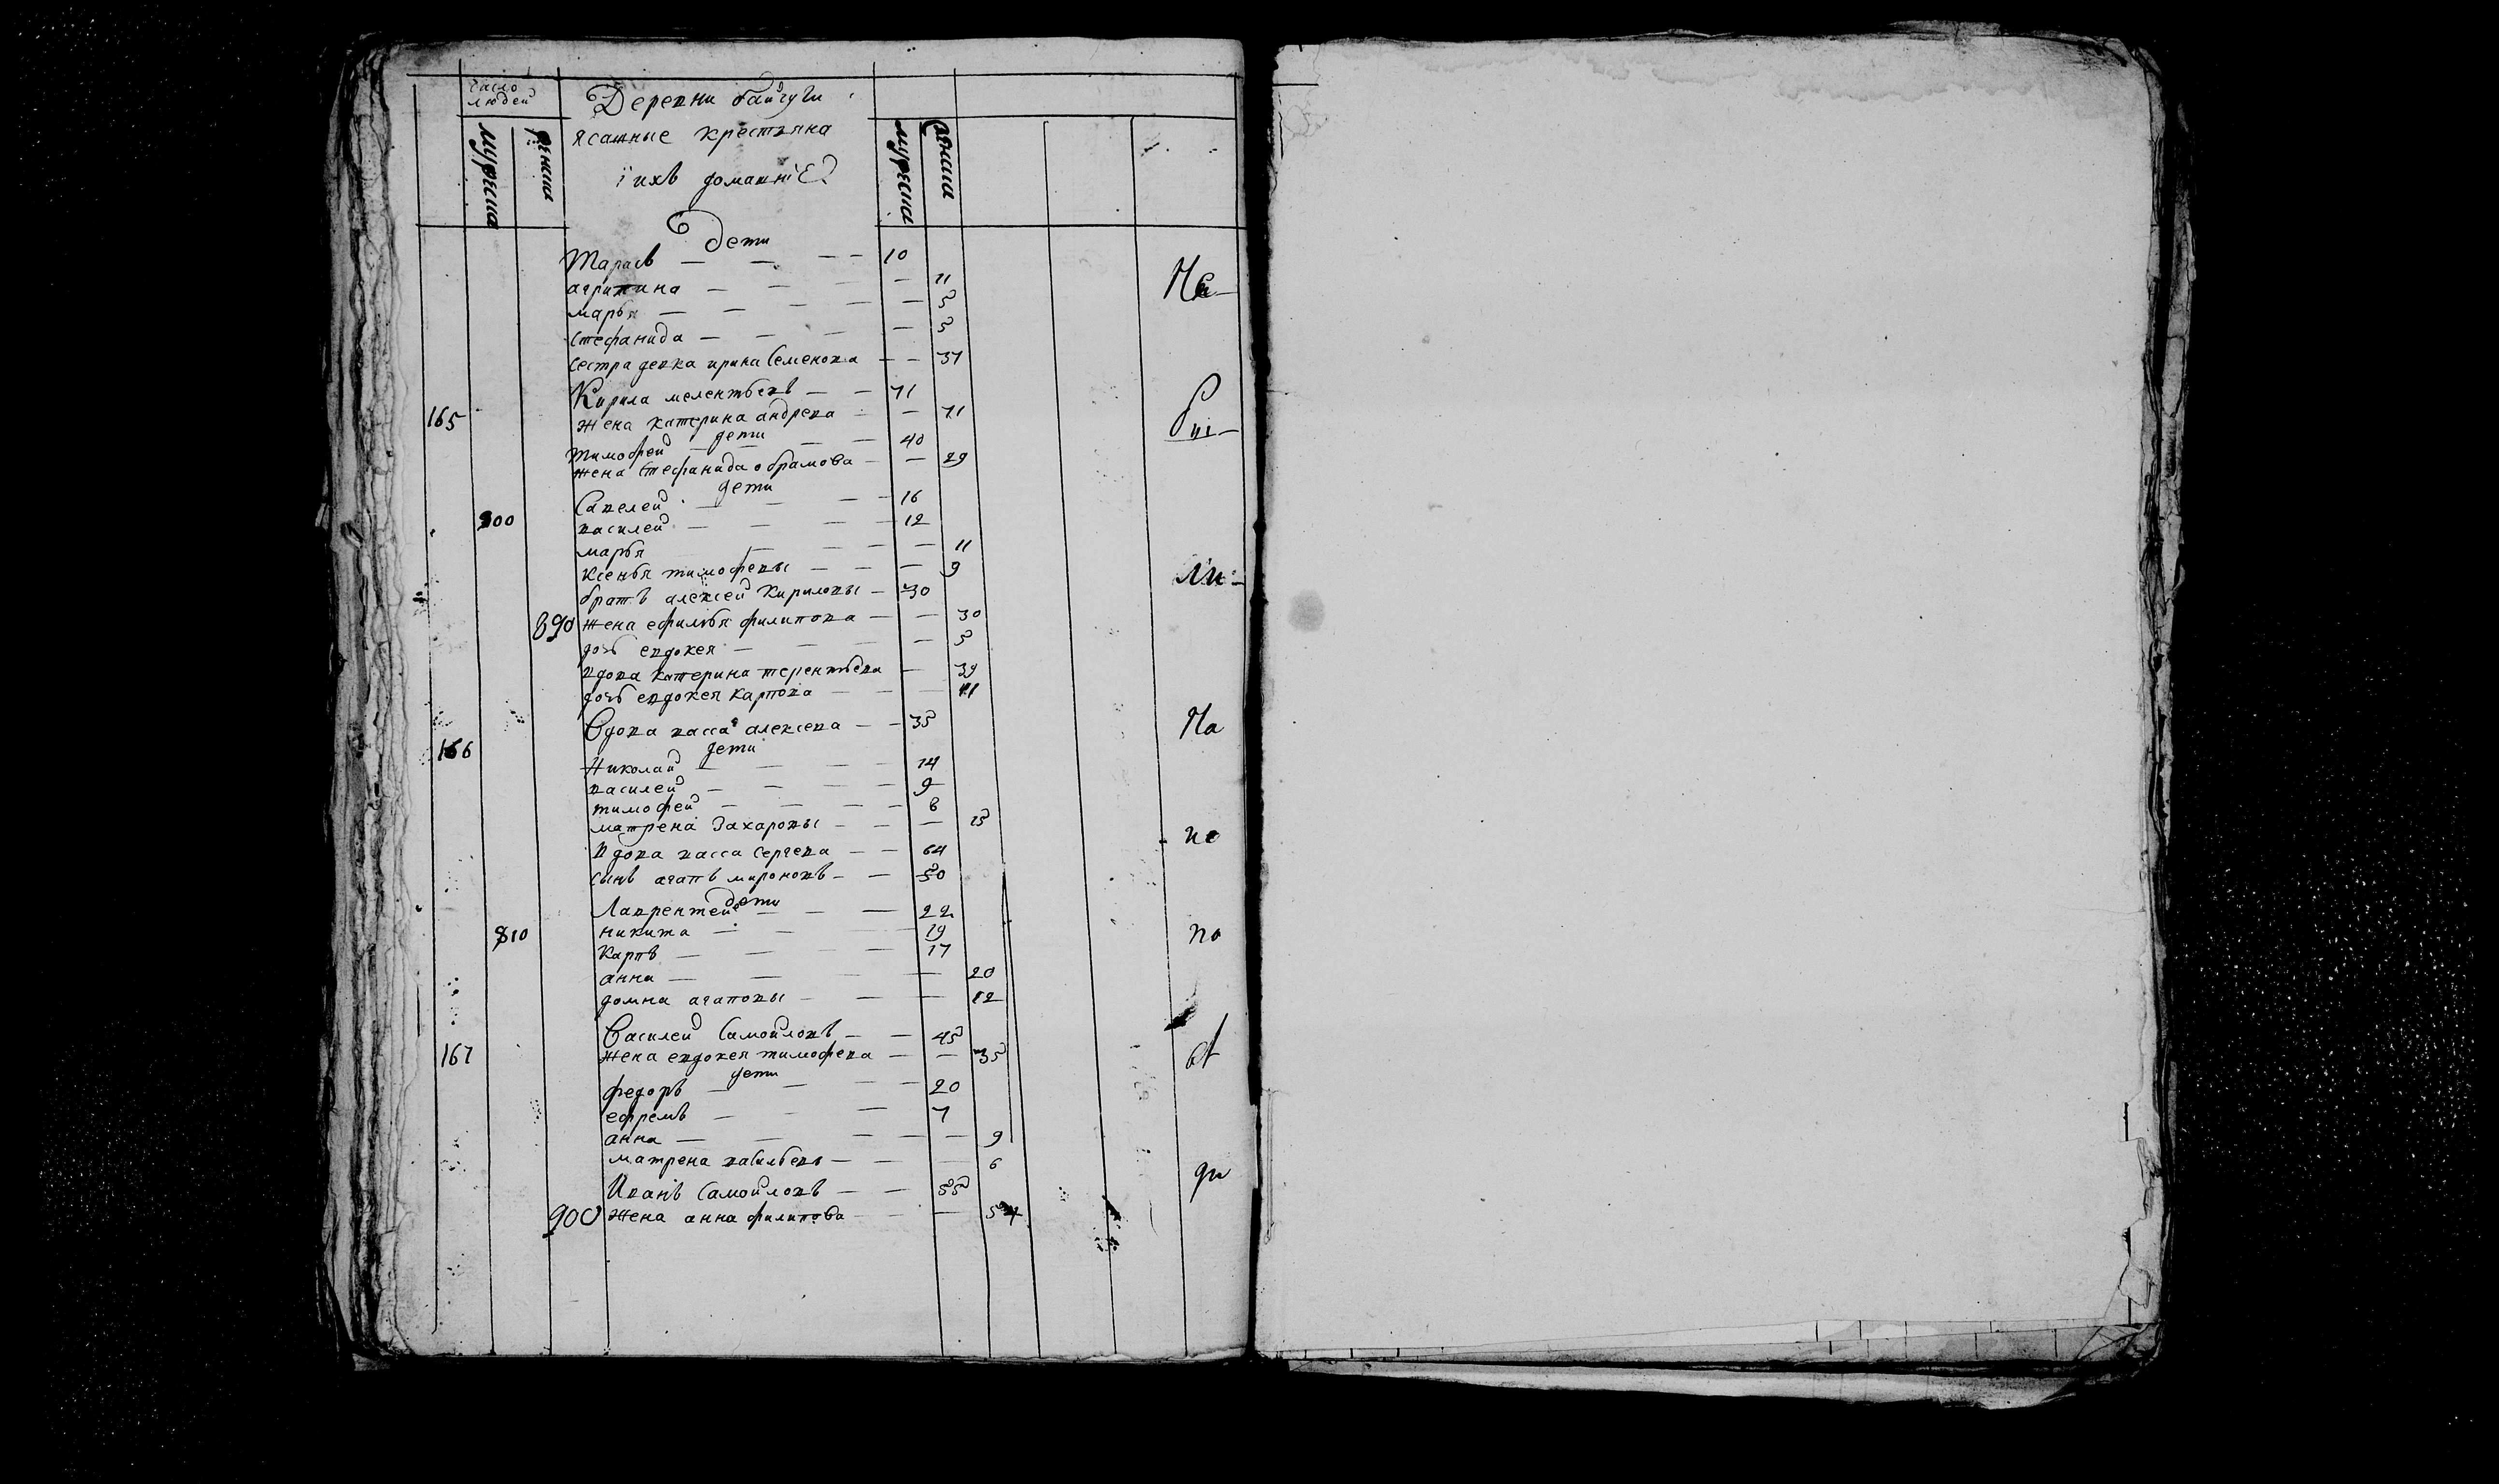 число людей
Деревни байчуги
ясашные крестьяна
i ихъ домашнiе
мужеска
женска
мужеска
женска
дети
Тарасъ — — — 10
агрипина — — — 11
марья — — — 5
стефанида — — — 5
сестра девка ирина Семенова — — 37
Кирила мелентьевъ — — 71
165 жена катерина андреева — 71
дети
тимофей — — 40
жена Стефанида обрамова — — 29
дети
Савелей — — 16
800 василей — — — 12
марья — — — 11
ксенья тимофевы — — — 9
братъ алексей Кириловы — 30
890 жена ефимья филипова — — 30
дочь евдокея — — — 5
вдова катерина терентьева — 39
дочь евдокея карпова — — — 11
Вдова васса алексева — — 35
166 дети
Николай — — — 14
василей — — — 9
тимофей — — — 8
матрена Захаровы — — — 15
вдова васса сергева — — 64
сынъ агапъ мироновъ — — 50
дети
Лаврентей — — — 22
810 никита — — — 19
карпъ — — — 17
анна — — — 20
домна агаповы — — — 12
Василей Самойловъ — — 45
167 жена евдокея тимофева — — 35
дети
федоръ — — — 20
ефремъ — — — 7
анна — — — 9
матрена васильевы — — 6
Иванъ Самойловъ — — 55
900 жена анна филипова — — 54
На
ли
На
но